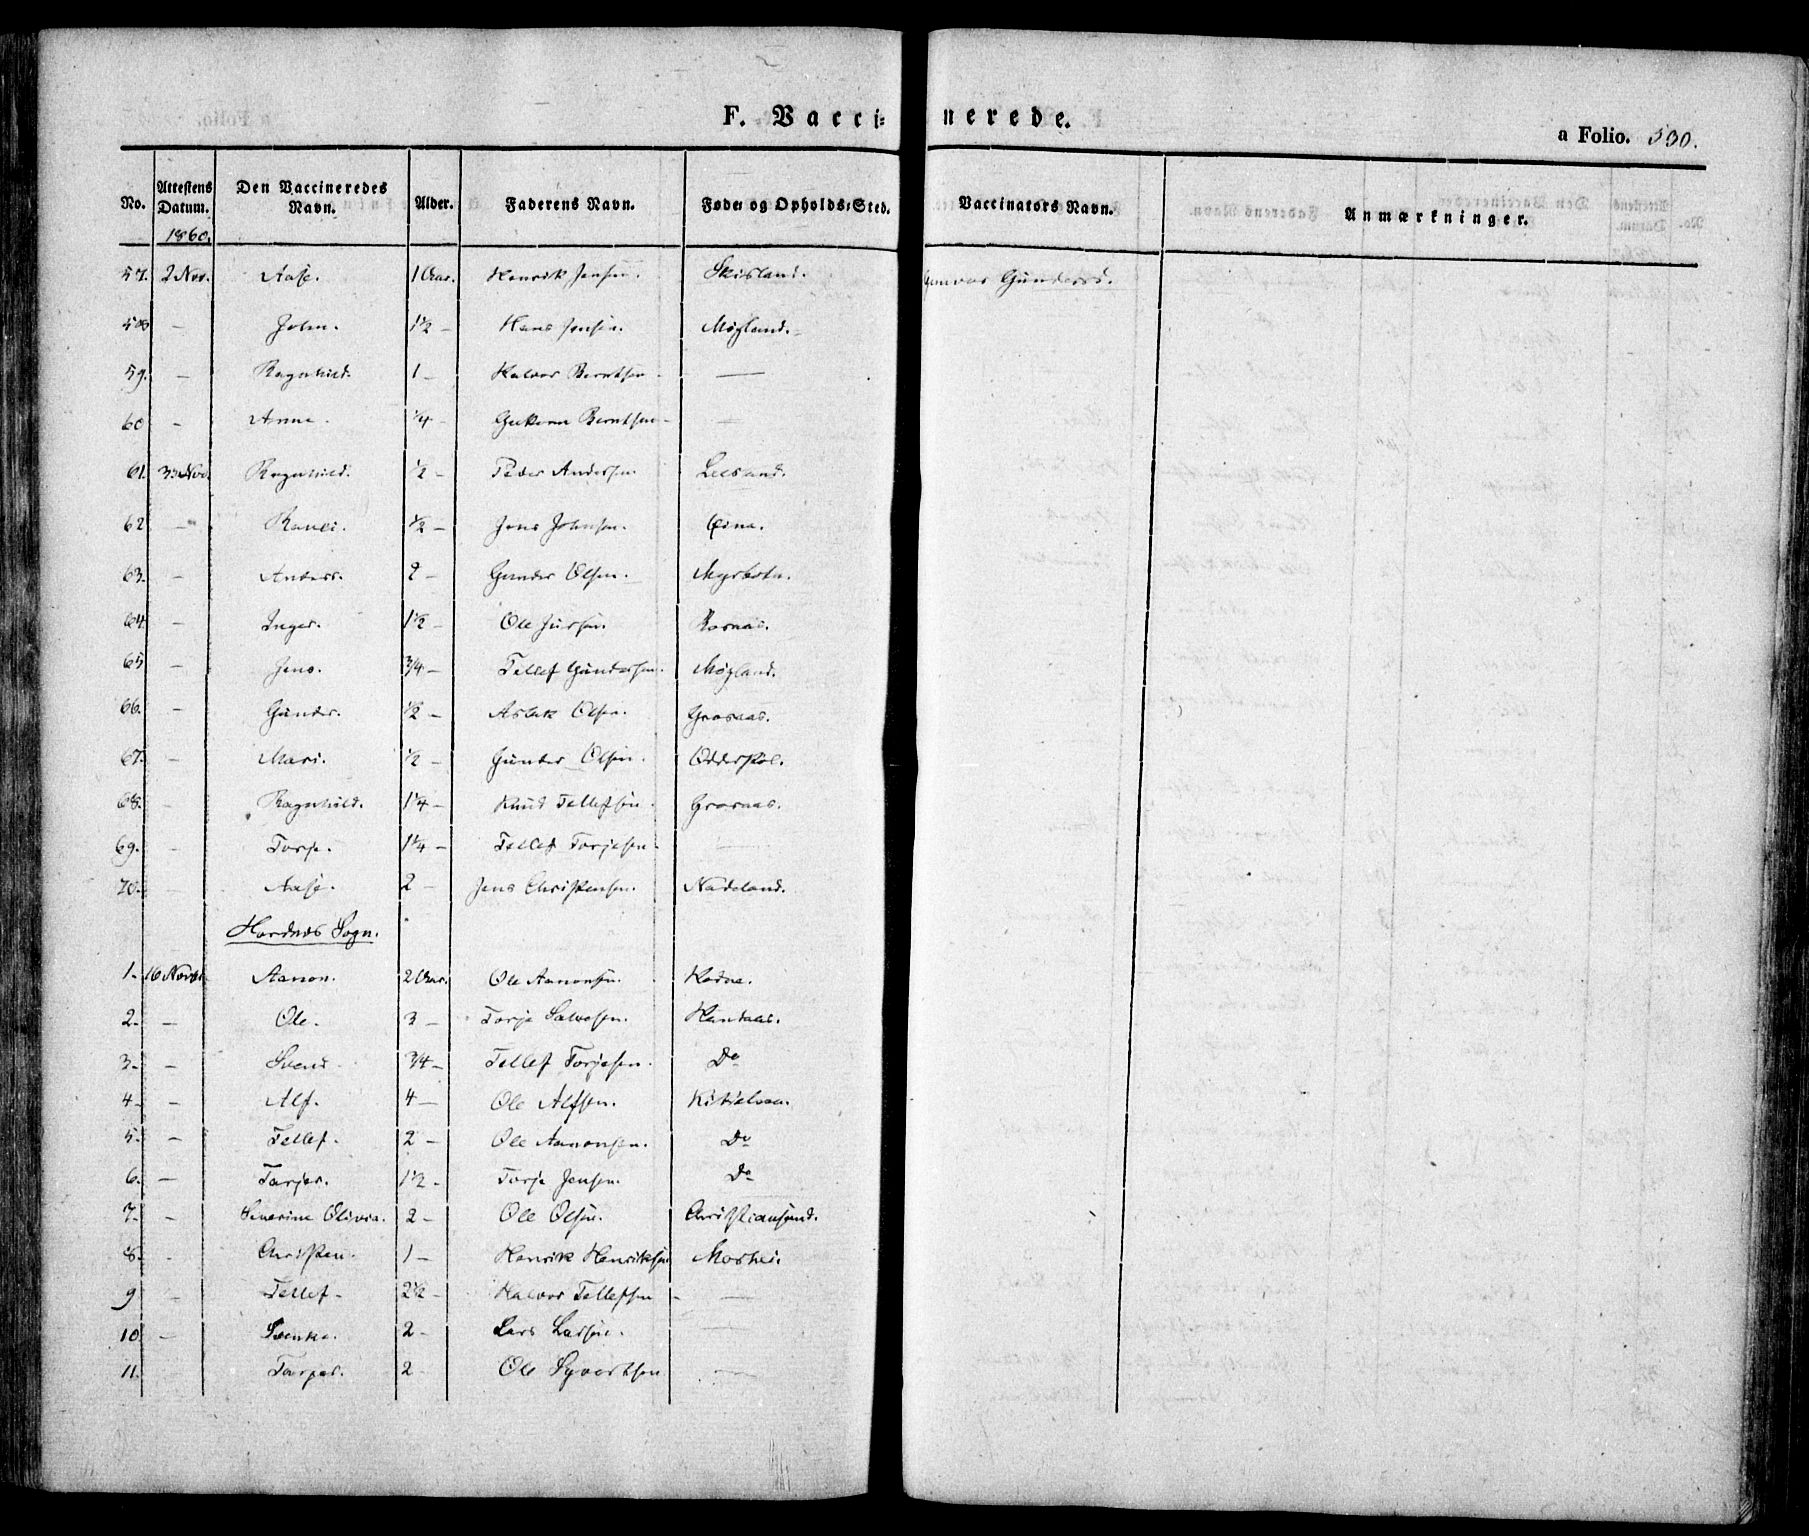 F. Vaccinerede.
a Folio. 530.
No. Attestens Datum. Den Vaccineredes Navn. Alder. Faderens Navn. Føde- og Opholds-Sted. Vaccinators Navn. Anmærkninger.
1860.
57. 2 Nov. Aase. 1 Aar. Henrik Jensen. Skisland. Gunvor Gunders.
58 — John. 1½ — Hans Jensen. Møgland.
59. — Ragnhild. 1 — Halvor Berntsen —
60 — Anne. ¼ — Berntsen — —
61. Nov. Ragnhild. ½ — Peder Andersen
62 — ½ — Jens Johnsen.
63. — Anders. 2 — Gunder Olsen. Myrbotn.
64. — Inger. 1½ Ole
65 — Jens. ¾ — Tellef Gundersen. Møgland.
66. — Gunder. ½ — Aslak Olsen. Grosaas.
67. — Mari. ½ — Gunder Olsen.
68. — Ragnhild. 1¼ — Knud Tellefsen. Grosaas.
69. — Torje. 1¼ — Tellef Torjesen — —
70. — Aase. 2 — Jens Christensen. Nadeland.
Hordnes Sogn.
1. 16 Novbr. Aanon. 2 Aar. Ole Aanonsen.
2. — Ole. 3 — Torje Salvesen.
3. — Svend. ¾ — Tellef Torjesen. Do
4. — Alf. 4 — Ole Alfsen.
5. — Tellef. 2 — Ole Aanonsen. Do
6. — Tarjer. 1½ — Torje Jensen. Do
7. — Severine Olivia. 2 — Ole Olsen. Christiansand.
8. — Christen. 1 — Henrik Henriksen
9 — Tellef. 2½ — Halvor Tellefsen — —
10 — 2 — Lars Larsen. —
11. Tarjer. 2 — Ole Syvertsen —